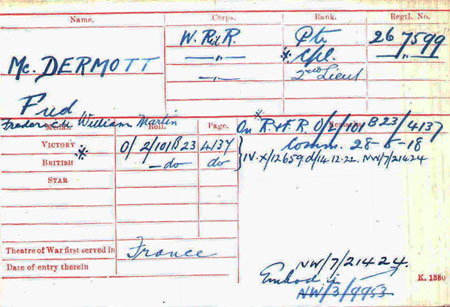 Name. Corps. Rank. Regtl. No.
Mc. DERMOTT W. Rid. R. Pte 267599
—„— * Cpl. —„—
Fred —„— 2nd Lieut
Frederick William Martin
Medal. Roll. Page.
On R. & F. R. O/2/101 B 23 / 4137
VICTORY * O/2/101 B 23 4137 Comm. 28-5-18
BRITISH —do— do IV. X/12659 d/14.12.22. NW/7/21424
STAR
Theatre of War first served in France
Date of entry therein
NW/7/21424.
K. 1380
NW/3/9953